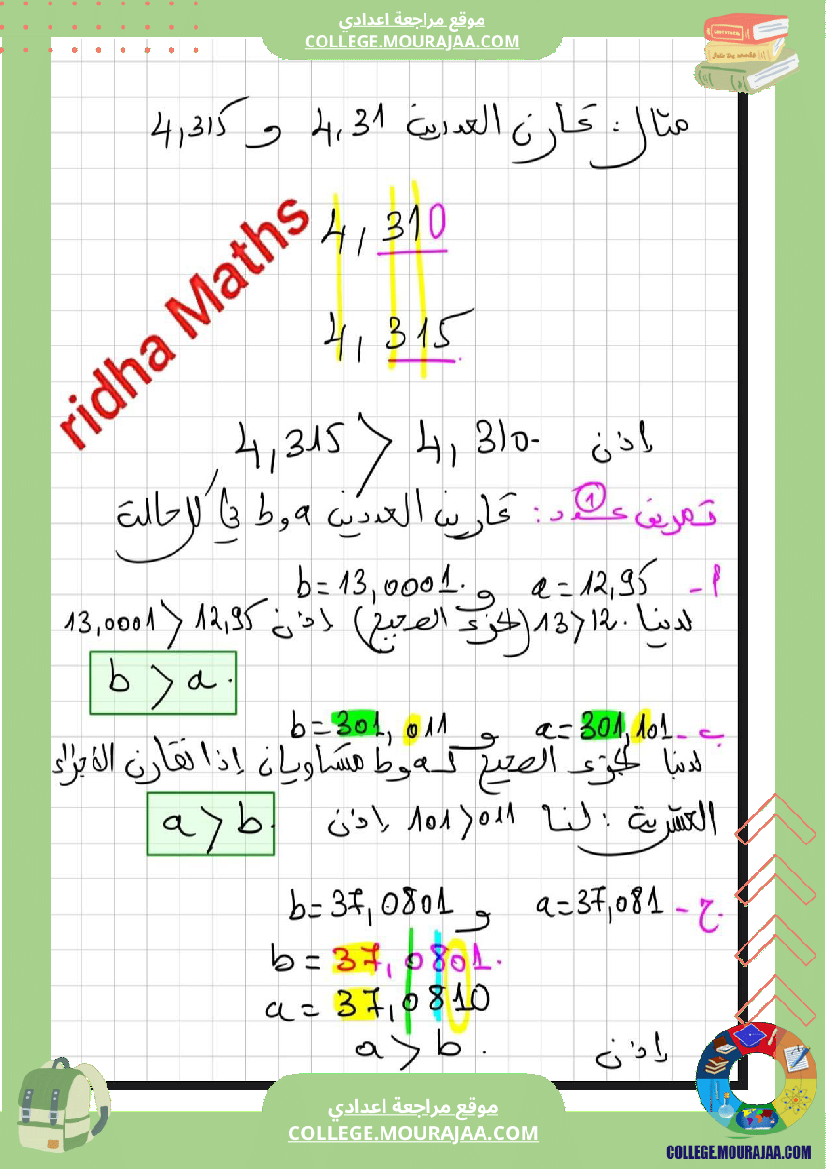 موقع مراجعة اعدادي
COLLEGE.MOURAJAA.COM
مثال: نقارن العددين 4,31 و 4,315
4,310
ridha Maths
4,315
إذن 4,315 > 4,310
تمرين عدد 1: نقارن العددين a و b في كل حالة
أ- a = 12,95 و b = 13,0001
لدينا 13 > 12 (الجزء الصحيح) إذن 13,0001 > 12,95
b > a
ب- a = 301,101 و b = 301,011
لدينا الجزء الصحيح لـ a و b متساويان إذا نقارن الأجزاء
العشرية: لنا 101 > 011 إذن a > b
ج- a = 37,081 و b = 37,0801
b = 37,0801
a = 37,0810
إذن a > b
موقع مراجعة اعدادي
COLLEGE.MOURAJAA.COM
COLLEGE.MOURAJAA.COM